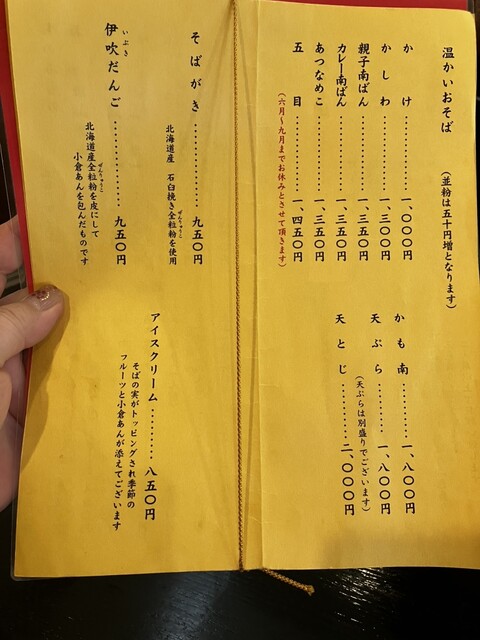 温かいおそば (並粉は五十円増となります)
かけ…………一、〇〇〇円
かしわ…………一、三〇〇円
親子南ばん…………一、三五〇円
カレー南ばん…………一、三五〇円
あつなめこ…………一、三五〇円
五目…………一、四五〇円
(六月〜九月までお休みとさせて頂きます)
かも南…………一、八〇〇円
天ぷら…………一、八〇〇円
(天ぷらは別盛りでございます)
天とじ…………二、〇〇〇円
そばがき…………九五〇円
北海道産 石臼挽き全粒粉を使用
ぜんりゅうこ
伊吹だんご…………九五〇円
いぶき
北海道産全粒粉を皮にして
ぜんりゅうこ
小倉あんを包んだものです
アイスクリーム…………八五〇円
そばの実がトッピングされ季節の
フルーツと小倉あんが添えてございます